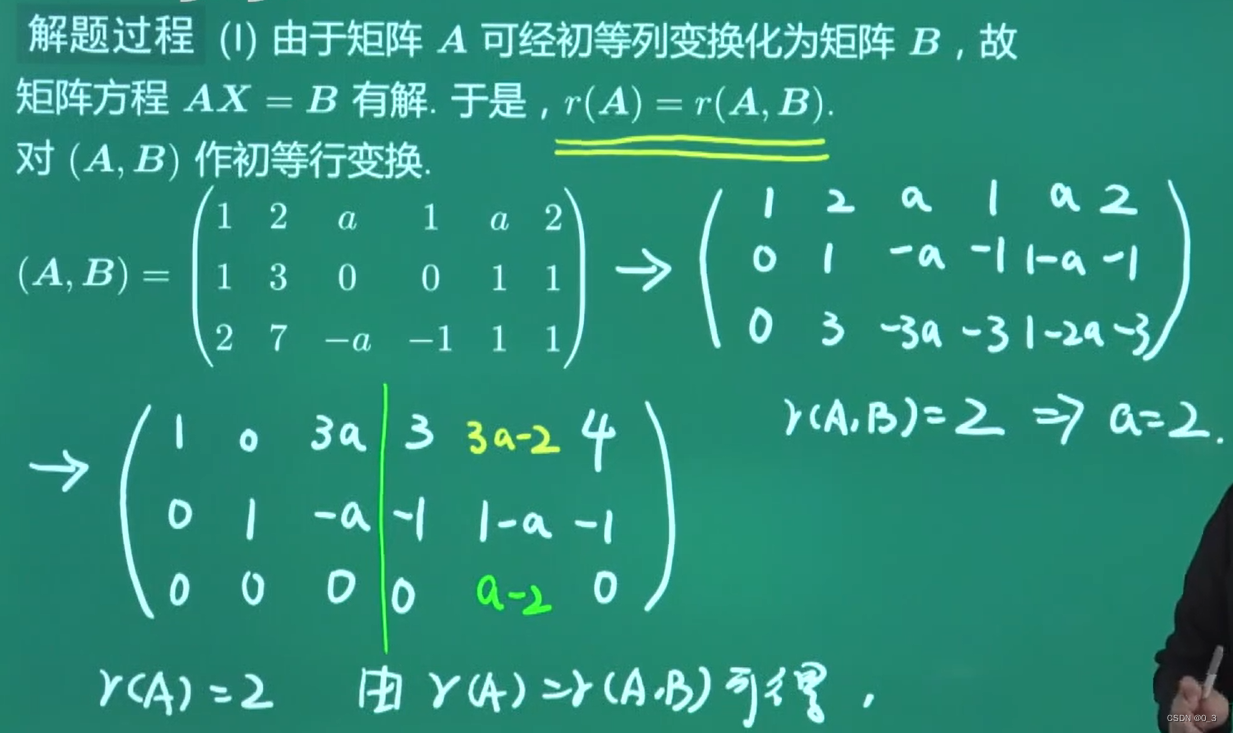 解题过程 (1) 由于矩阵 A 可经初等列变换化为矩阵 B，故
矩阵方程 AX = B 有解. 于是，r(A) = r(A, B).
对 (A, B) 作初等行变换.
(A, B) =
1 2 a 1 a 2
1 3 0 0 1 1
2 7 -a -1 1 1
→
1 2 a 1 a 2
0 1 -a -1 1-a -1
0 3 -3a -3 1-2a -3
→
1 0 3a 3 3a-2 4
0 1 -a -1 1-a -1
0 0 0 0 a-2 0
r(A,B)=2 ⇒ a=2.
r(A)=2 由 r(A)=r(A,B) 可得,
CSDN @0_3